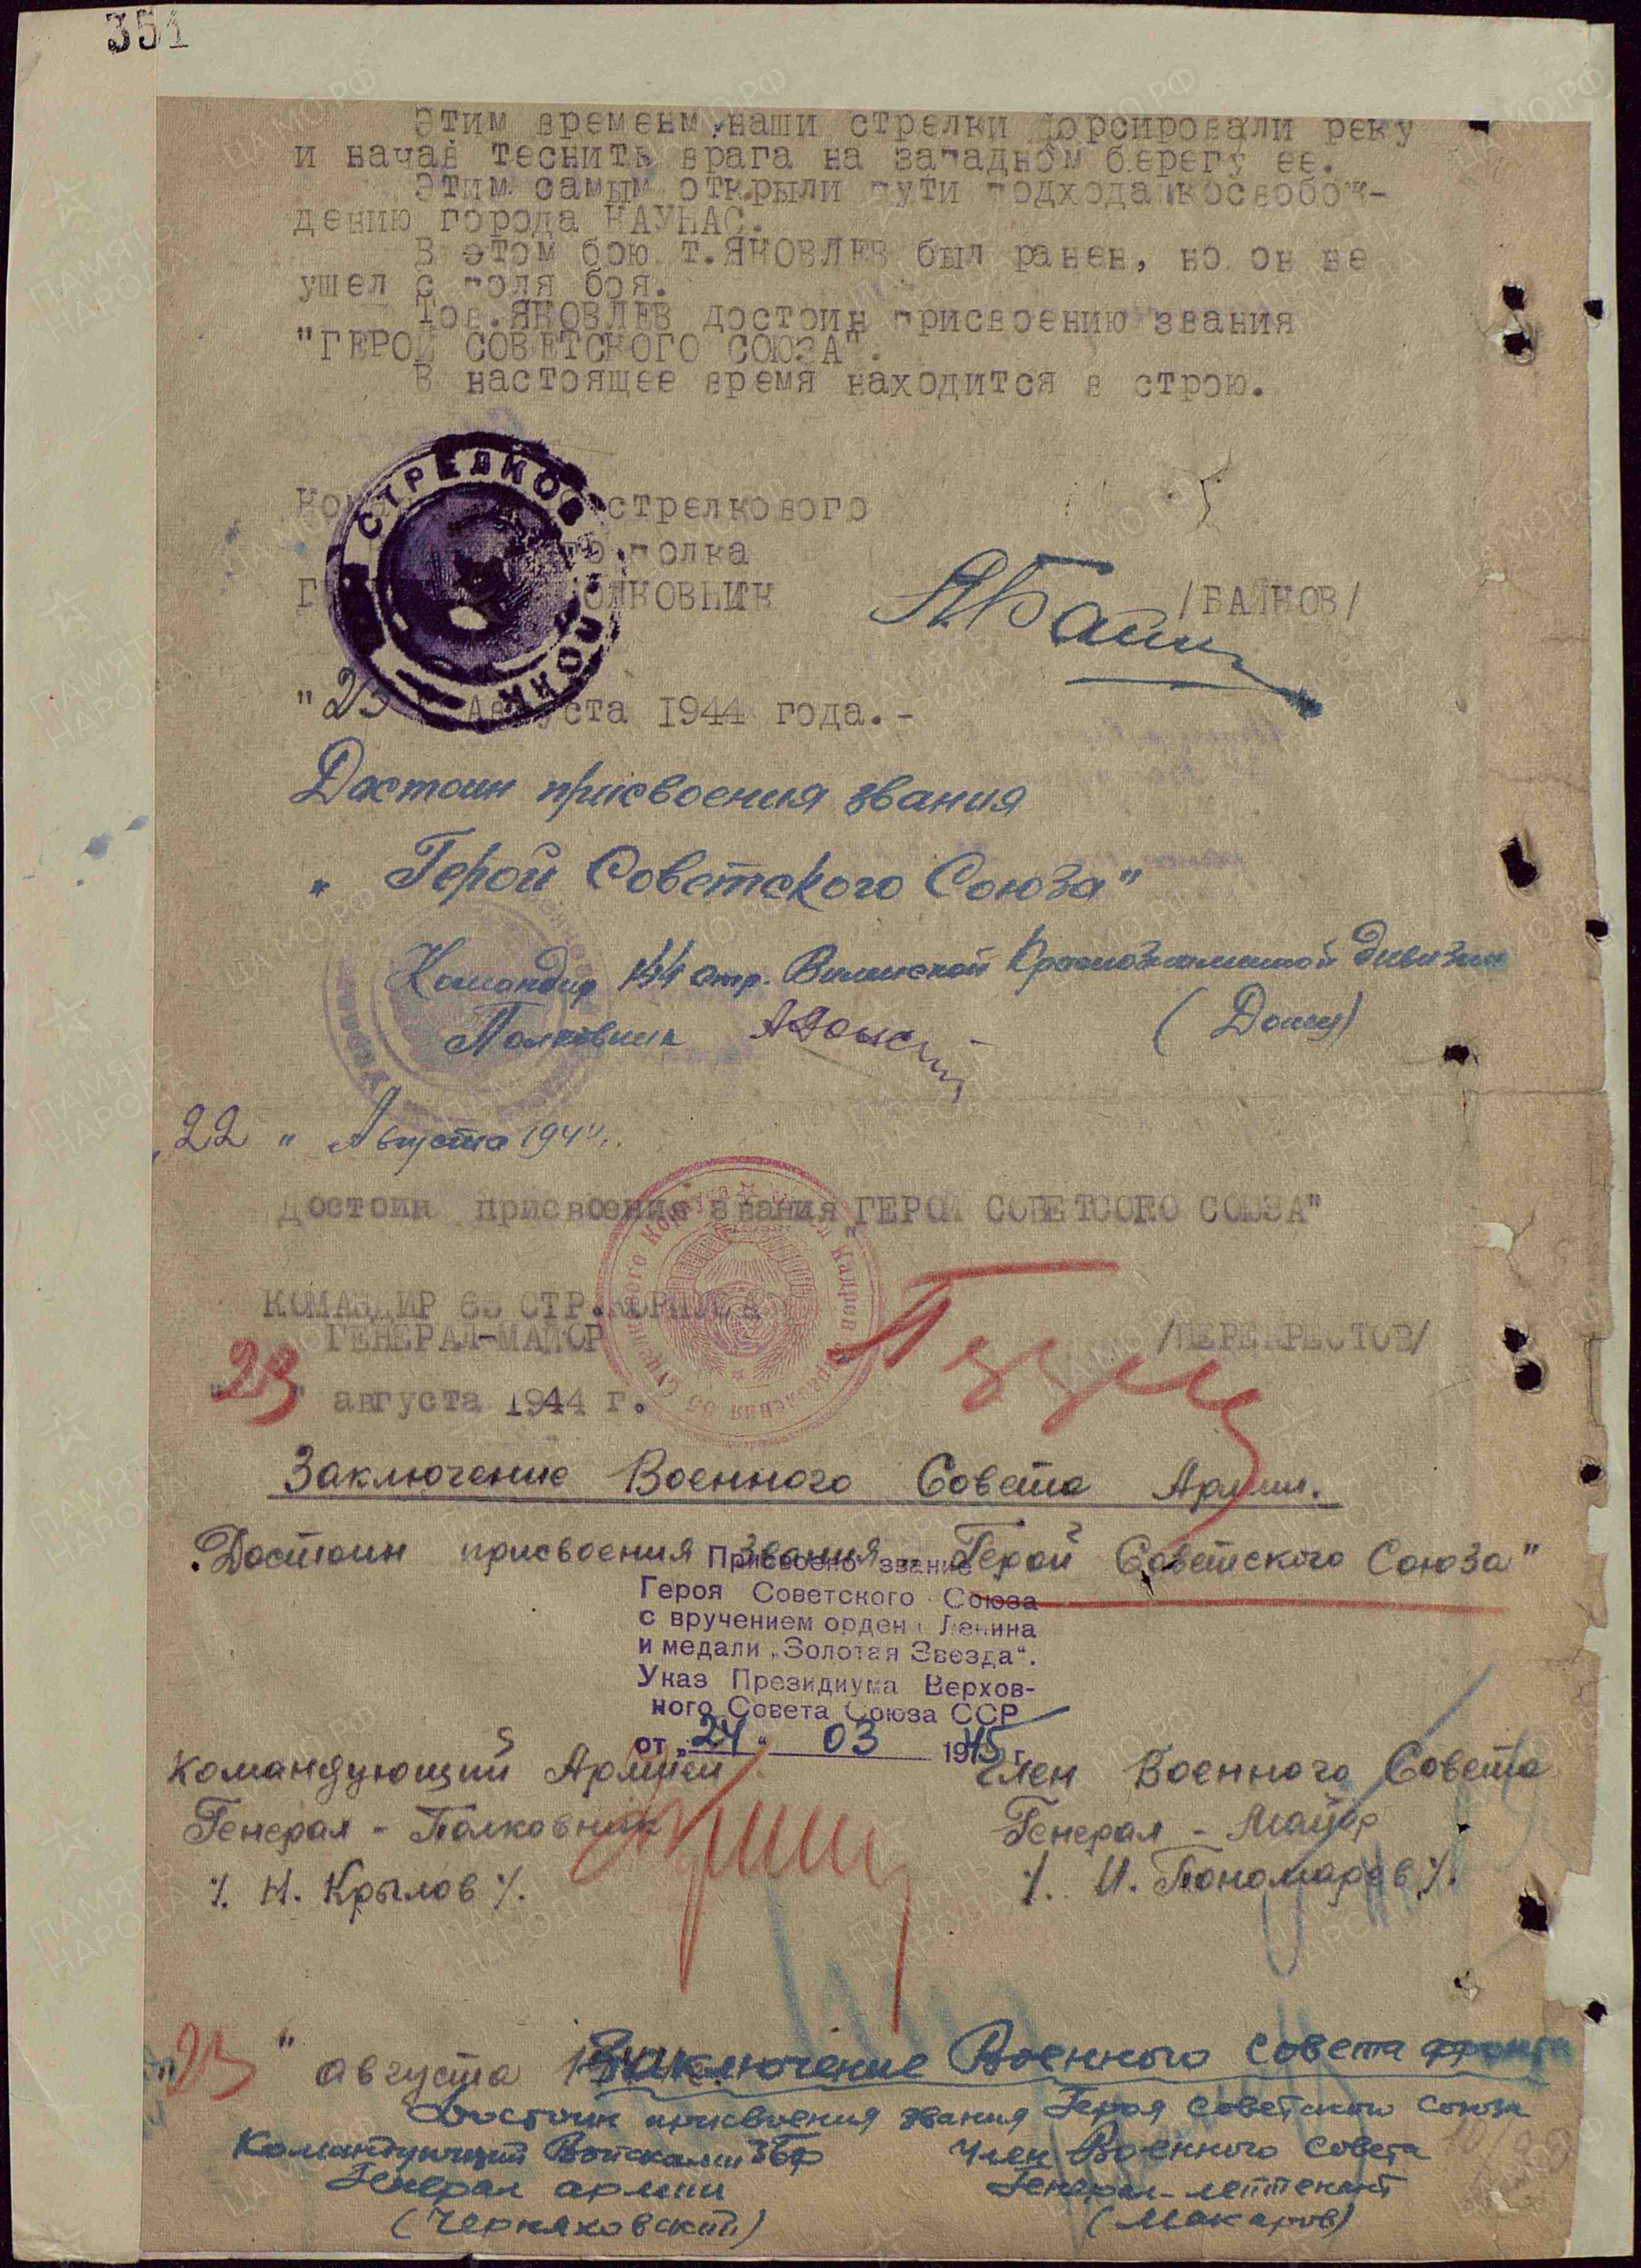 351
Этим временм наши стрелки форсировали реку
и начав теснить врага на западном берегу ее.
Этим самым открыли пути подхода косвобож-
дению города КАУНАС.
В этом бою т.ЯКОВЛЕВ был ранен, но он не
ушел с поля боя.
Тов.ЯКОВЛЕВ достоин присвоению звания
"ГЕРОЙ СОВЕТСКОГО СОЮЗА".
В настоящее время находится в строю.
стрелкового
полка
/БАЙКОВ/
" Августа 1944 года.-
СТРЕЛКОВ
Достоин присвоения звания
" Герой Советского Союза"
Командир 144 стр. Виленской Краснознаменной дивизии
Полковник (Донец)
22 " Августа 1944
Достоин присвоения звания "ГЕРОЙ СОВЕТСОГО СОЮЗА"
КОМАНДИР 65 СТР.КОРПУСА
ГЕНЕРАЛ-МАЙОР /ПЕРЕКРЕСТОВ/
"23" августа 1944 г.
Заключение Военного Совета Армии.
Достоин присвоения звания "Герой Советского Союза"
Присвоено звание
Героя Советского Союза
с вручением ордена Ленина
и медали „Золотая Звезда“.
Указ Президиума Верхов-
ного Совета Союза ССР
от „24“ 03 1945 г.
Командующий Армией Член Военного Совета
Генерал - Полковник Генерал - Майор
/. Н. Крылов /. /. И. Пономарев /.
"23" августа
Заключение Военного Совета фронта
Достоин присвоения звания Героя Советского Союза
Командующий Войсками 3БФ Член Военного Совета
Генерал армии Генерал-лейтенант
(Черняховский) (Макаров)
ПАМЯТЬ НАРОДА
ЦАМО.РФ